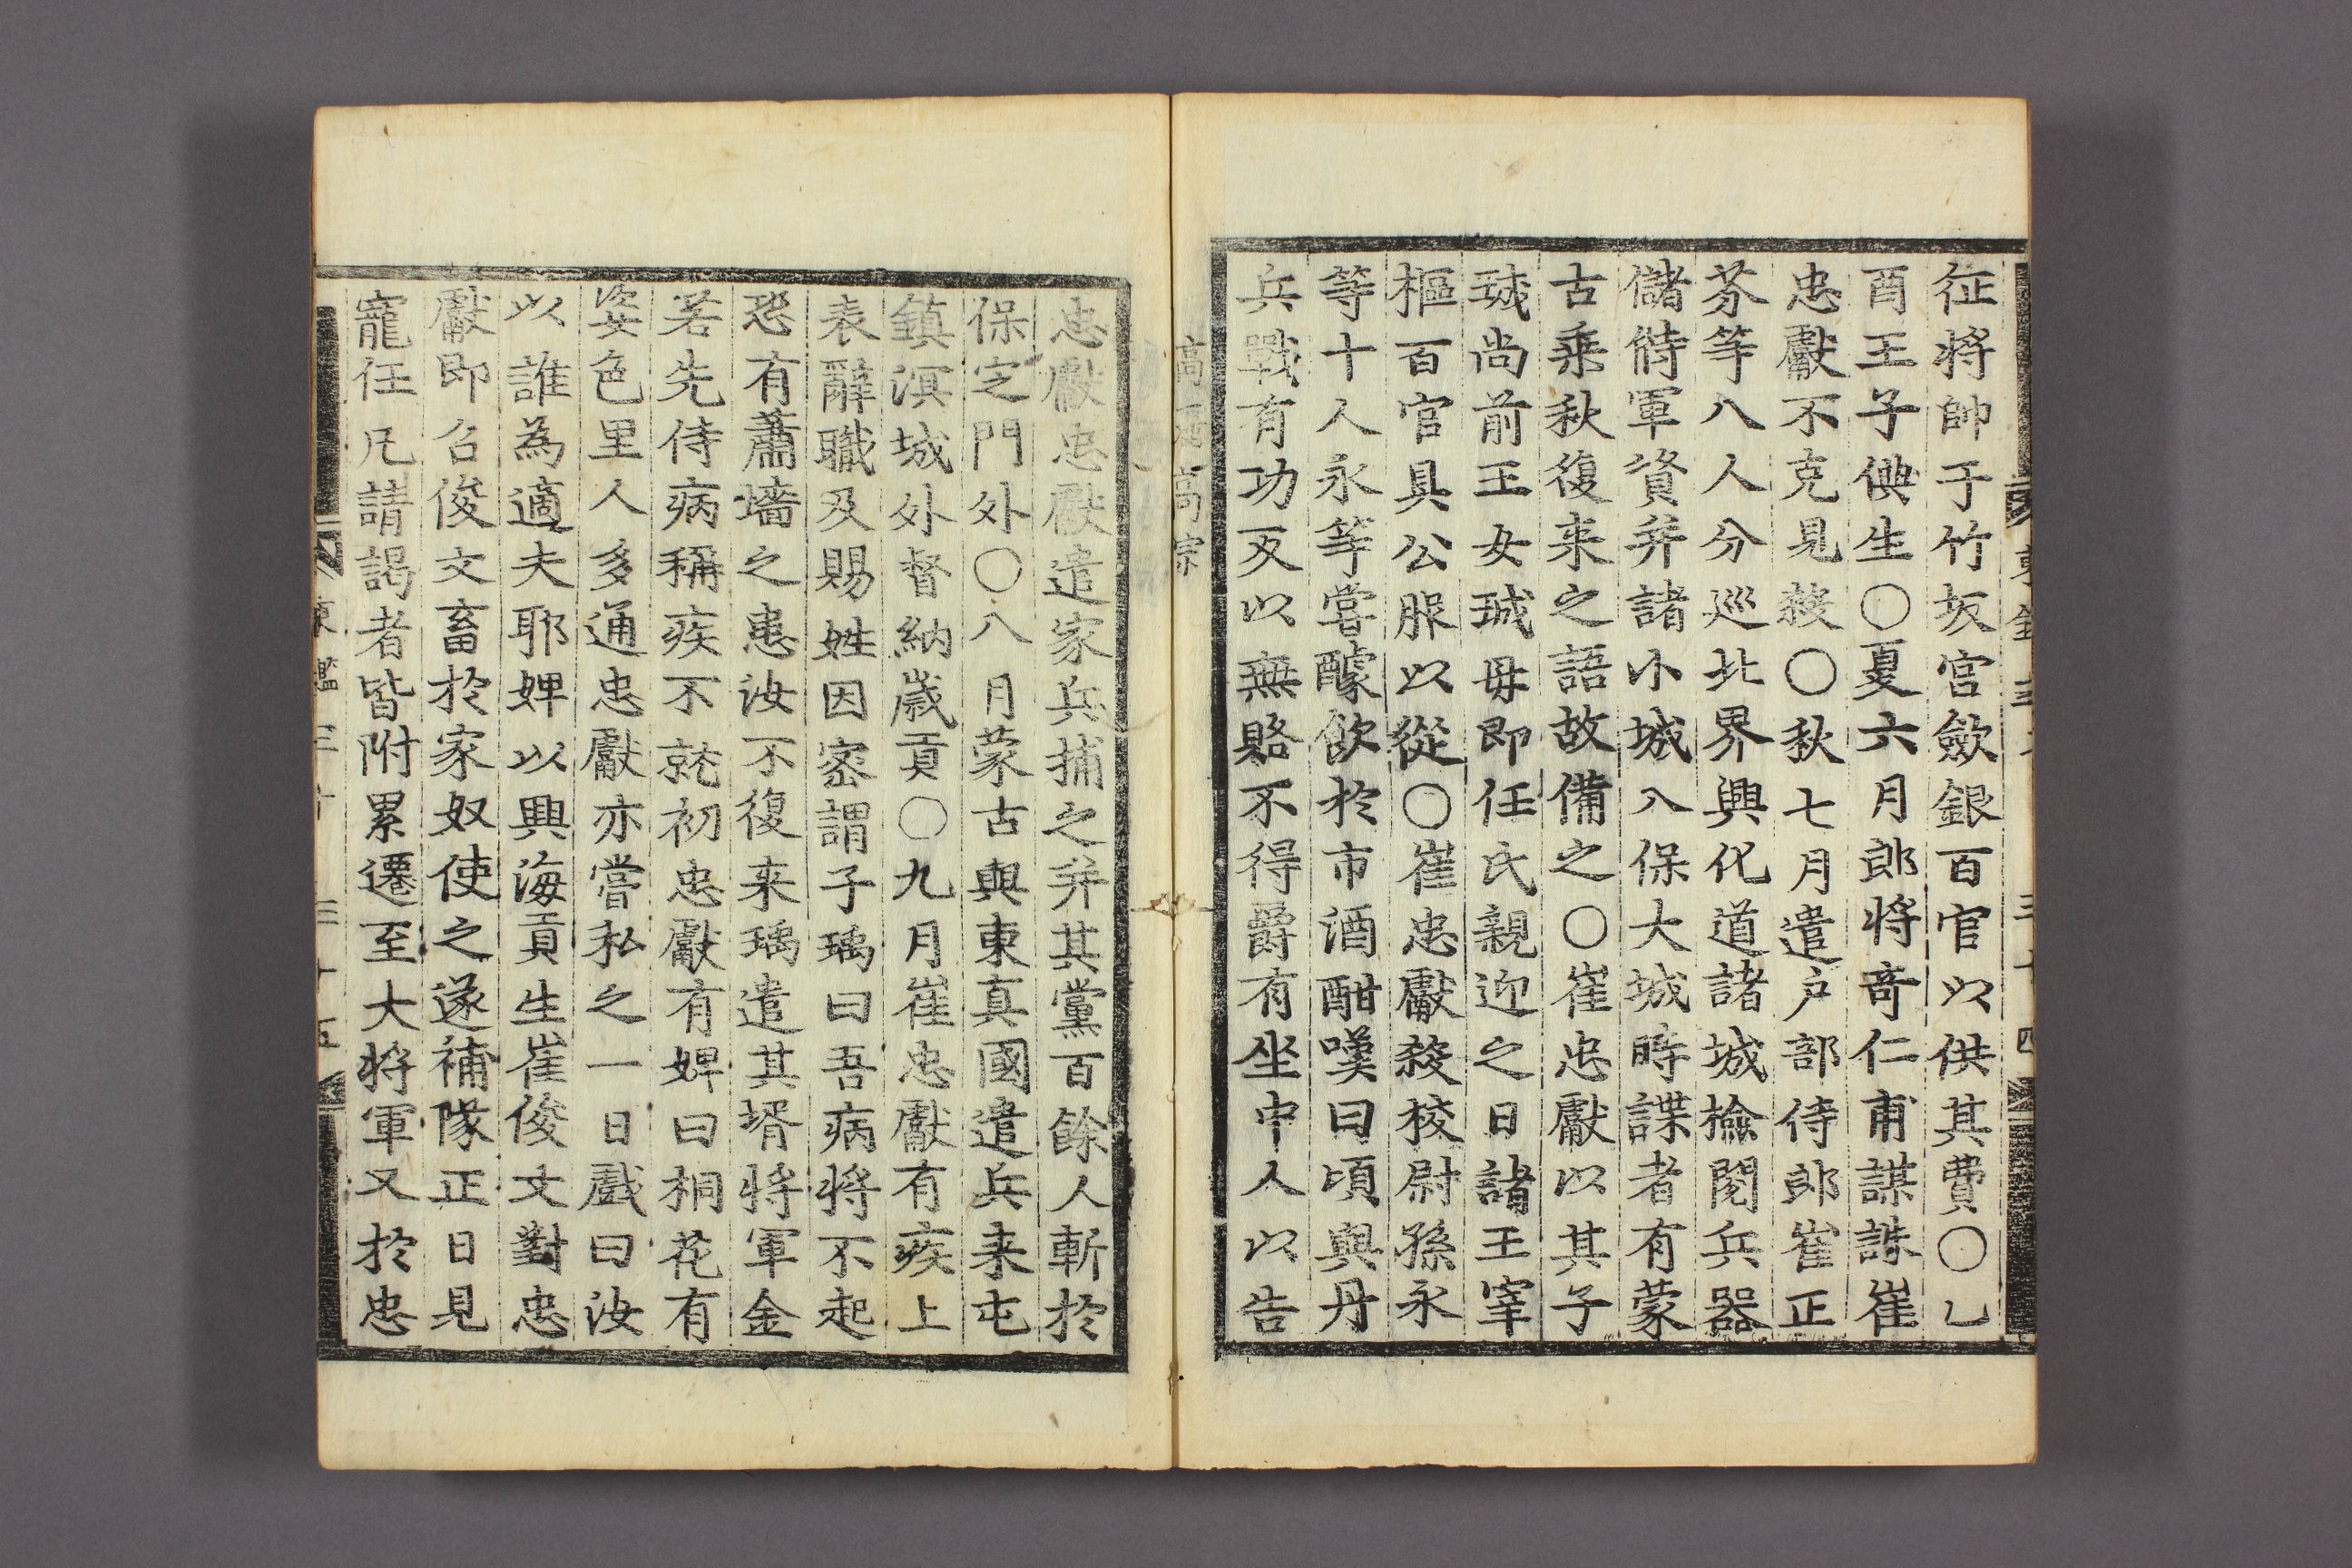 征將帥于竹坂宮斂銀百官以供其費〇乙
酉王子倎生〇夏六月郞將奇仁甫謀誅崔
忠獻不克見殺〇秋七月遣戶部侍郞崔正
芬等八人分巡北界興化道諸城撿閱兵器
儲偫軍資并諸小城入保大城時諜者有蒙
古乘秋復来之語故備之〇崔忠獻以其子
珹尚前王女珹母卽任氏親迎之日諸王宰
樞百官具公服以從〇崔忠獻殺校尉孫永
等十人永等嘗醵飮於市酒酣嘆曰頃與丹
兵戰有功反以無賂不得爵有坐中人以告
高宗
忠獻忠獻遣家兵捕之并其黨百餘人斬於
保定門外〇八月蒙古與東真國遣兵来屯
鎮溟城外督納歲貢〇九月崔忠獻有疾上
表辭職及賜姓因密謂子瑀曰吾病將不起
恐有蕭墻之患汝不復来瑀遣其壻將軍金
若先侍病稱疾不就初忠獻有婢曰桐花有
姿色里人多通忠獻亦嘗私之一日戲曰汝
以誰為適夫耶婢以興海貢生崔俊文對忠
獻即召俊文畜於家奴使之遂補隊正日見
寵任凡請謁者皆附累遷至大將軍又於忠